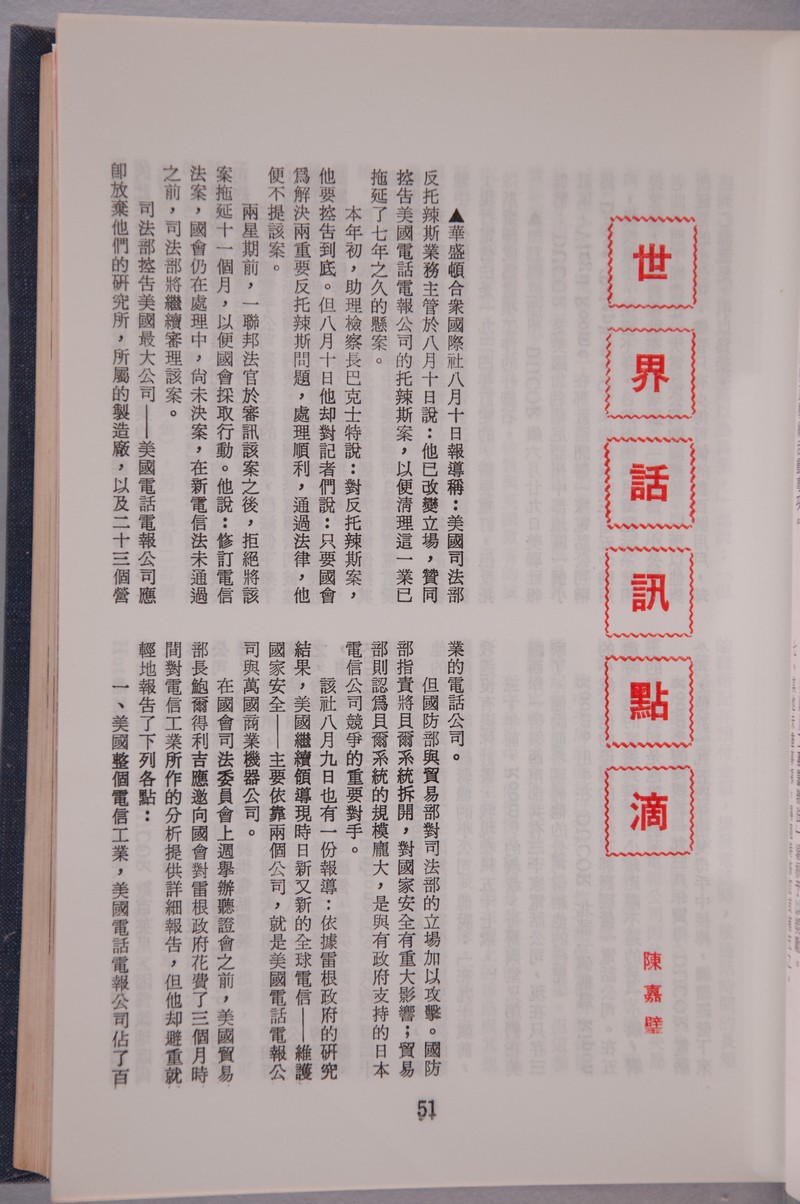 世界話訊點滴
陳嘉璧
▲華盛頓合衆國際社八月十日報導稱：美國司法部
反托辣斯業務主管於八月十日說：他已改變立場，贊同
控告美國電話電報公司的托辣斯案，以便淸理這一業已
拖延了七年之久的懸案。
本年初，助理檢察長巴克士特說：對反托辣斯案，
他要控告到底。但八月十日他却對記者們說：只要國會
爲解決兩重要反托辣斯問題，處理順利，通過法律，他
便不提該案。
兩星期前，一聯邦法官於審訊該案之後，拒絕將該
案拖延十一個月，以便國會採取行動。他說：修訂電信
法案，國會仍在處理中，尙未決案，在新電信法未通過
之前，司法部將繼續審理該案。
司法部控告美國最大公司——美國電話電報公司應
卽放棄他們的硏究所，所屬的製造廠，以及二十三個營
業的電話公司。
但國防部與貿易部對司法部的立場加以攻擊。國防
部指責將貝爾系統拆開，對國家安全有重大影響；貿易
部則認爲貝爾系統的規模龐大，是與有政府支持的日本
電信公司競爭的重要對手。
該社八月九日也有一份報導：依據雷根政府的硏究
結果，美國繼續領導現時日新又新的全球電信——維護
國家安全——主要依靠兩個公司，就是美國電話電報公
司與萬國商業機器公司。
在國會司法委員會上週舉辦聽證會之前，美國貿易
部長鮑爾得利吉應邀向國會對雷根政府花費了三個月時
間對電信工業所作的分析提供詳細報告，但他却避重就
輕地報告了下列各點：
一、美國整個電信工業，美國電話電報公司佔了百
51